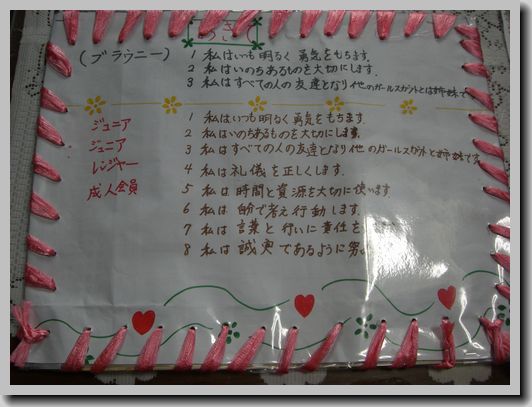 (ブラウニー)
1 私はいつも明るく勇気をもちます。
2 私はいのちあるものを大切にします。
3 私はすべての人の友達となり他のガールスカウトとは姉妹で
ジュニア
ジュニア
レンジャー
成人会員
1 私はいつも明るく勇気をもちます。
2 私はいのちあるものを大切にします。
3 私はすべての人の友達となり他のガールスカウトと姉妹です
4 私は礼儀を正しくします。
5 私は時間と資源を大切に使います
6 私は自分で考え行動します。
7 私は言葉と行いに責任を
8 私は誠実であるように努